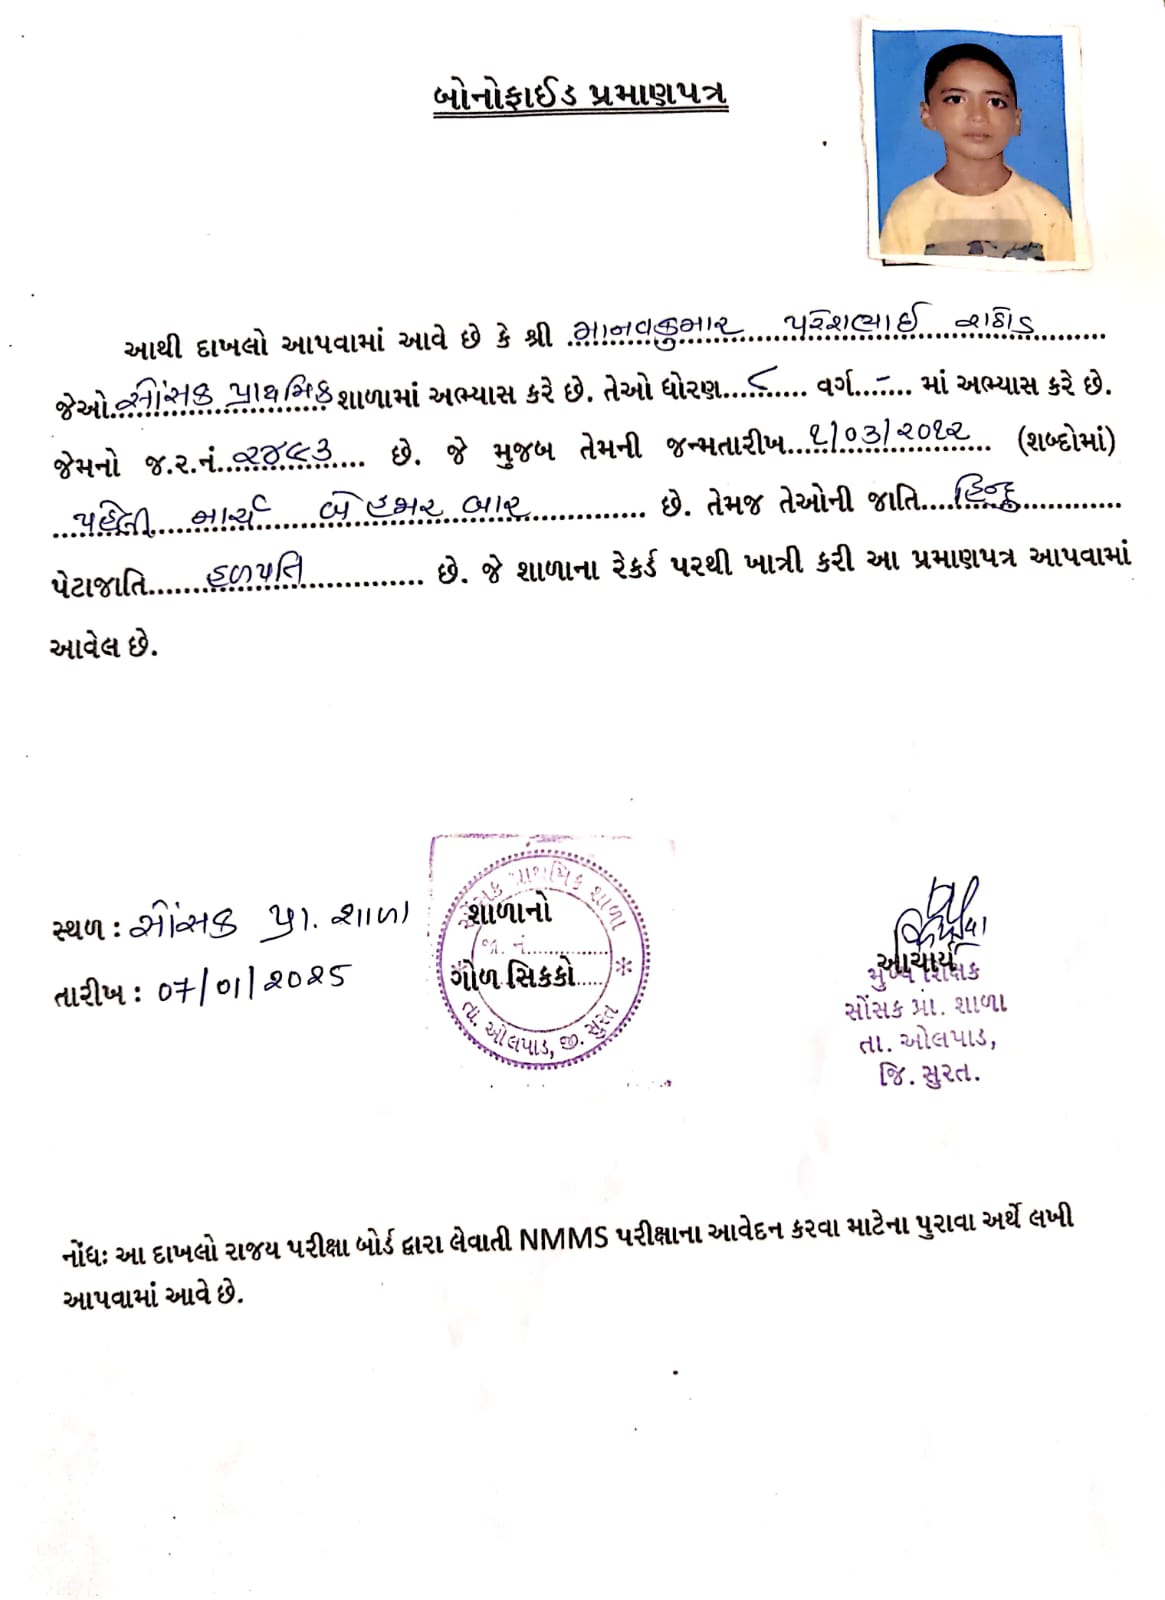 બોનોફાઈડ પ્રમાણપત્ર
આથી દાખલો આપવામાં આવે છે કે શ્રી માનવકુમાર પરેશભાઈ રાઠોડ
જેઓ સોંસક પ્રાથમિક શાળામાં અભ્યાસ કરે છે. તેઓ ધોરણ ૮ વર્ગ - માં અભ્યાસ કરે છે.
જેમનો જ.ર.નં. ૨૪૯૩ છે. જે મુજબ તેમની જન્મતારીખ ૧/૦૩/૨૦૧૨ (શબ્દોમાં)
પહેલી માર્ચ બે હજાર બાર છે. તેમજ તેઓની જાતિ હિન્દુ
પેટાજાતિ હળપતિ છે. જે શાળાના રેકર્ડ પરથી ખાત્રી કરી આ પ્રમાણપત્ર આપવામાં
આવેલ છે.
સોંસક પ્રાથમિક શાળા
સ્થળ : સોંસક પ્રા. શાળા
શાળાનો
જા. નં.
તારીખ : 07/01/2025
ગોળ સિકકો
તા. ઓલપાડ, જી. સુરત
આચાર્ય
મુખ્ય શિક્ષક
સોંસક પ્રાં. શાળા
તા. ઓલપાડ,
જિ. સુરત.
નોંધઃ આ દાખલો રાજય પરીક્ષા બોર્ડ દ્વારા લેવાતી NMMS પરીક્ષાના આવેદન કરવા માટેના પુરાવા અર્થે લખી
આપવામાં આવે છે.